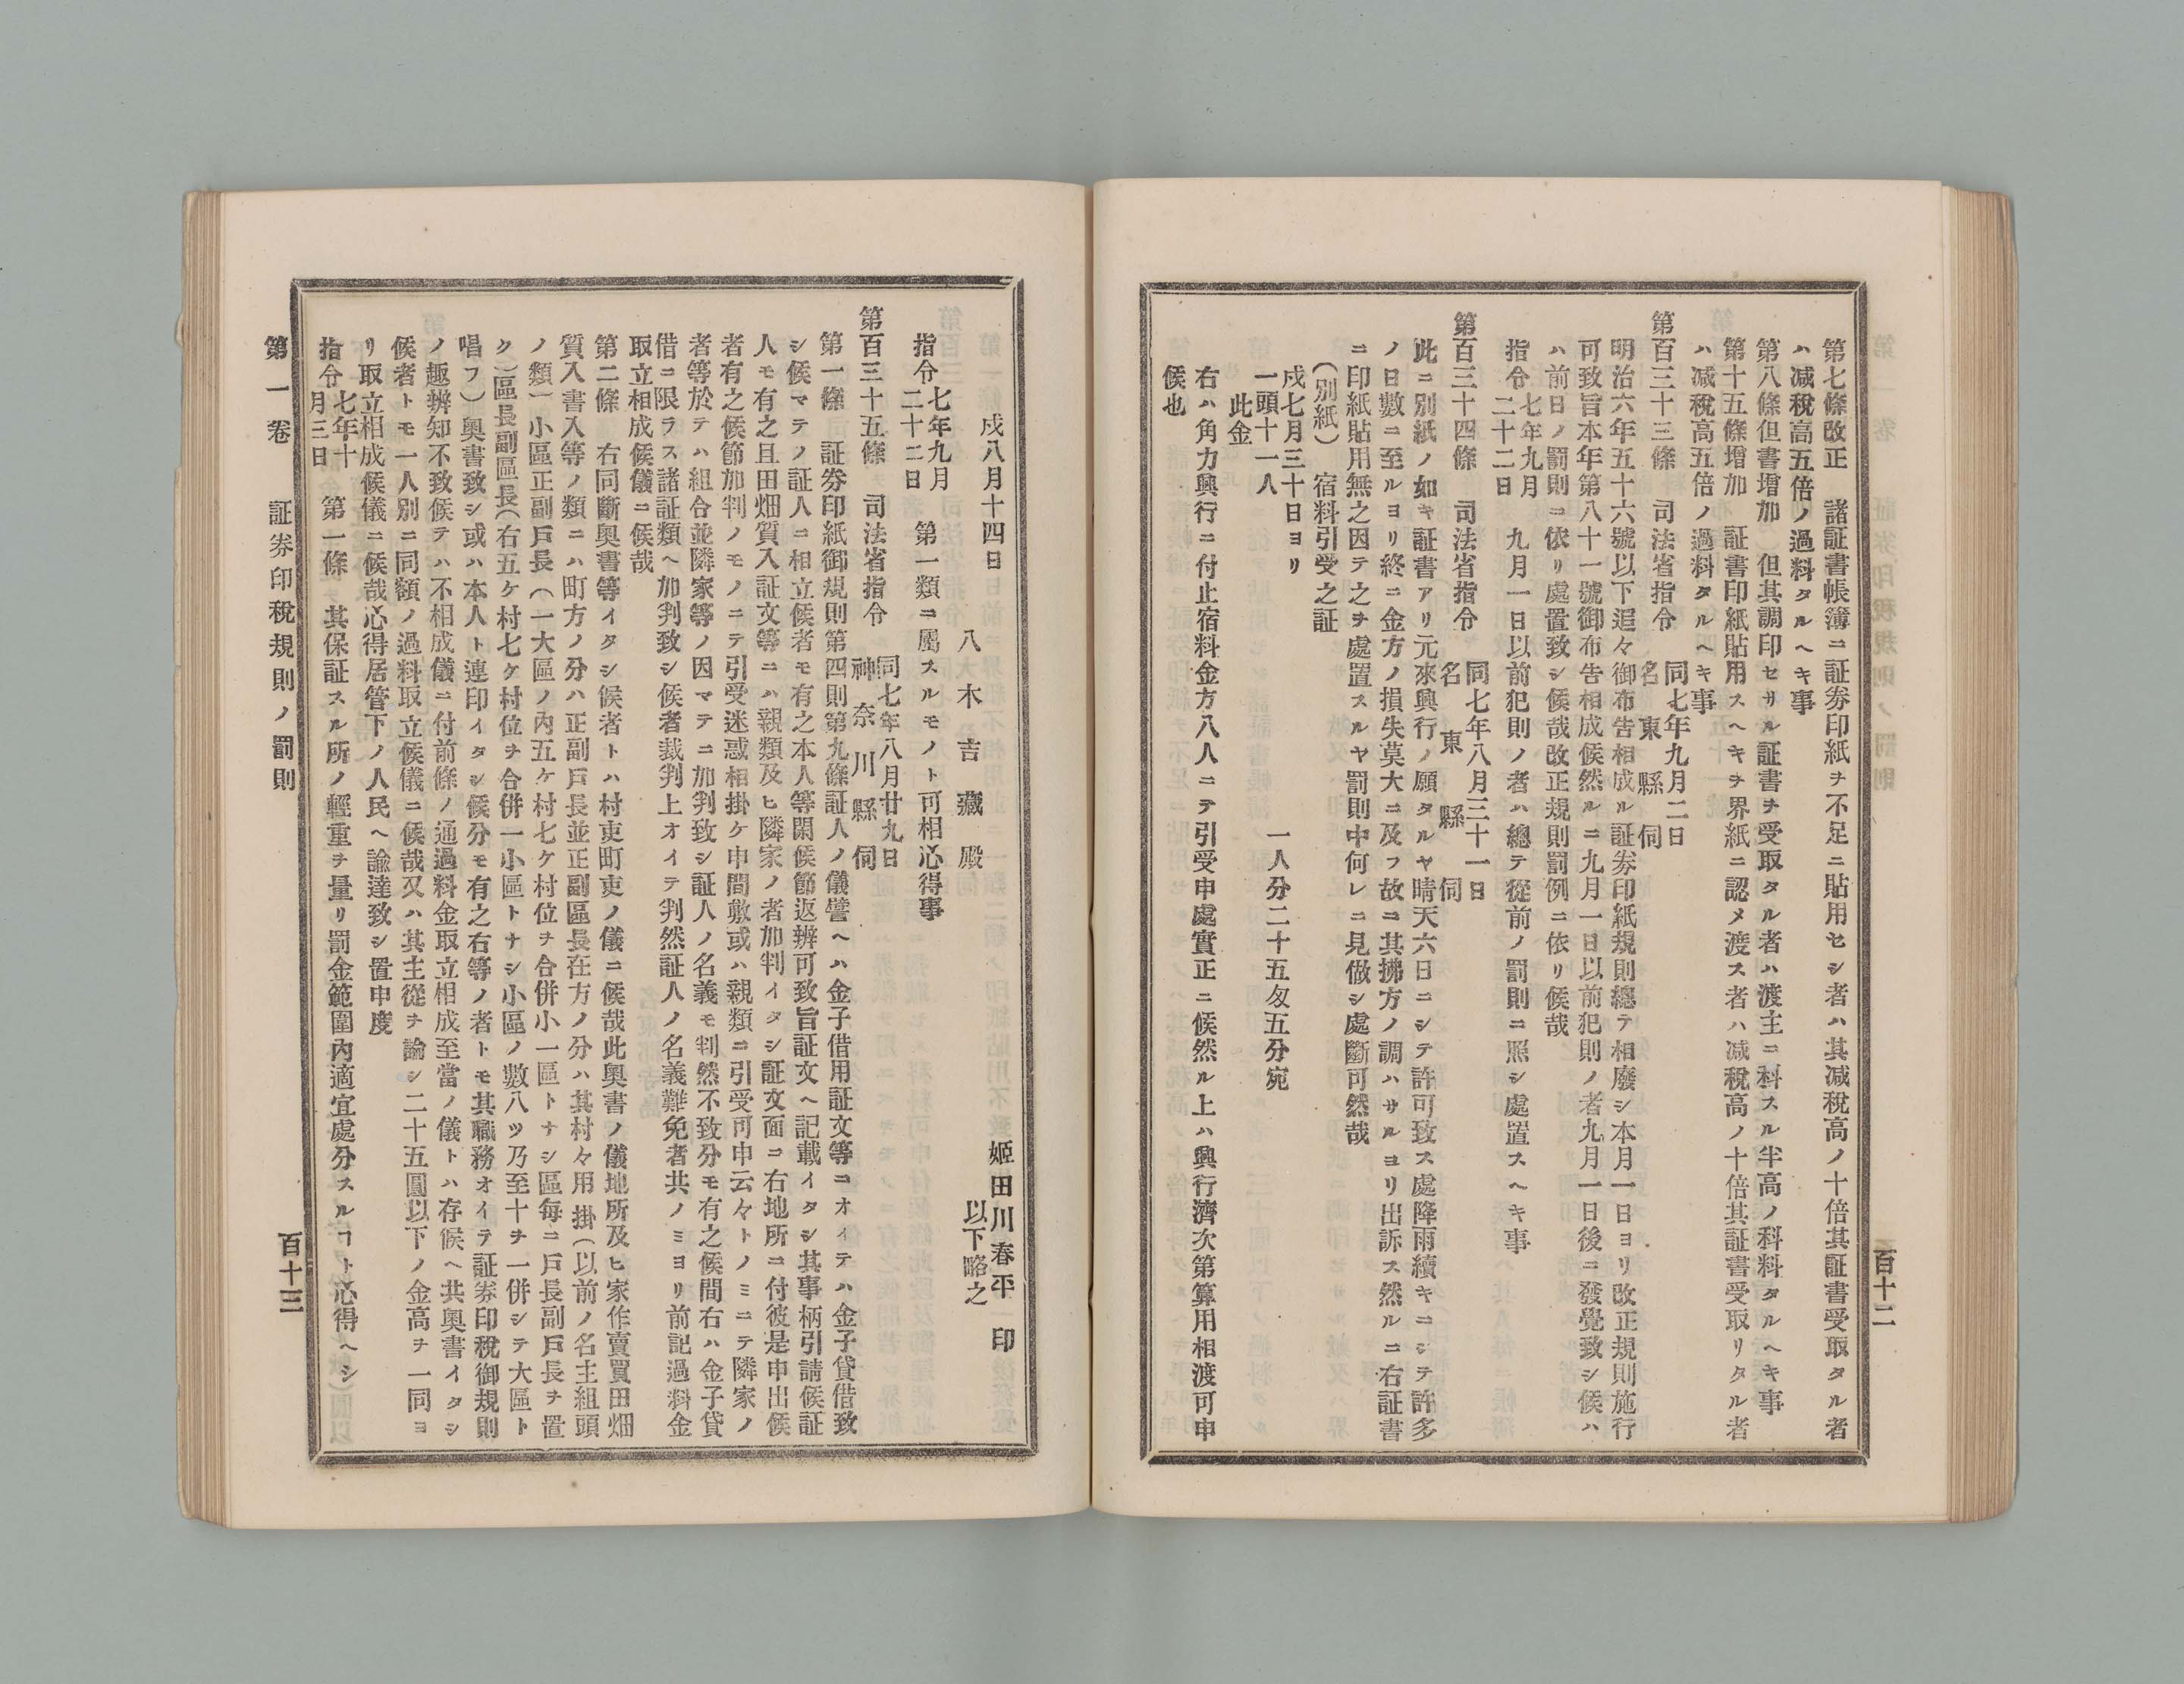 百十二
第七條改正　諸証書帳簿ニ証券印紙ヲ不足ニ貼用セシ者ハ其減稅高ノ十倍其証書受取タル者
ハ減稅高五倍ノ過料タルヘキ事
第八條但書增加　但其調印セサル証書ヲ受取タル者ハ渡主ニ科スル半高ノ科料タルヘキ事
第十五條增加　証書印紙貼用スヘキヲ界紙ニ認メ渡ス者ハ減稅高ノ十倍其証書受取リタル者
ハ減稅高五倍ノ過料タルヘキ事
第百三十三條　司法省指令　同七年九月二日
名東縣伺
明治六年五十六號以下追々御布告相成ル証券印紙規則總テ相廢シ本月一日ヨリ改正規則施行
可致旨本年第八十一號御布告相成候然ルニ九月一日以前犯則ノ者九月一日後ニ發覺致シ候ハ
ハ前日ノ罰則ニ依リ處置致シ候哉改正規則罰例ニ依リ候哉
指令　七年九月二十二日　九月一日以前犯則ノ者ハ總テ從前ノ罰則ニ照シ處置スヘキ事
第百三十四條　司法省指令　同七年八月三十一日
名東縣伺
此ニ別紙ノ如キ証書アリ元來興行ノ願タルヤ晴天六日ニシテ許可致ス處降雨續キニシテ許多
ノ日數ニ至ルヨリ終ニ金方ノ損失莫大ニ及フ故ニ其拂方ノ調ハサルヨリ出訴ス然ルニ右証書
ニ印紙貼用無之因テ之ヲ處置スルヤ罰則中何レニ見做シ處斷可然哉
（別紙）　宿料引受之証
戌七月三十日ヨリ
一頭十一八　一人分二十五匁五分宛
此金
右ハ角力興行ニ付止宿料金方八人ニテ引受申處實正ニ候然ル上ハ興行濟次第算用相渡可申
候也
戌八月十四日　姬田川春平　印
八木吉藏殿　以下略之
指令　七年九月二十二日　第一類ニ屬スルモノト可相心得事
第百三十五條　司法省指令　同七年八月廿九日
神奈川縣伺
第一條　証券印紙御規則第四則第九條証人ノ儀譬ヘハ金子借用証文等ニオイテハ金子貸借致
シ候マテノ証人ニ相立候者モ有之本人等閑候節返辨可致旨証文ヘ記載イタシ其事柄引請候証
人モ有之且田畑質入証文等ニハ親類及ヒ隣家ノ者加判イタシ証文面ニ右地所ニ付彼是申出候
者有之候節加判ノモノニテ引受迷惑相掛ケ申間敷或ハ親類ニ引受可申云々トノミニテ隣家ノ
者等於テハ組合並隣家等ノ因マテニ加判致シ証人ノ名義モ判然不致分モ有之候間右ハ金子貸
借ニ限ラス諸証類ヘ加判致シ候者裁判上オイテ判然証人ノ名義難免者共ノミヨリ前記過料金
取立相成候儀ニ候哉
第二條　右同斷奧書等イタシ候者トハ村吏町吏ノ儀ニ候哉此奧書ノ儀地所及ヒ家作賣買田畑
質入書入等ノ類ニハ町方ノ分ハ正副戶長並正副區長在方ノ分ハ其村々用掛（以前ノ名主組頭
ノ類）小區正副戶長（一大區ノ內五ケ村七ケ村位ヲ合併小一區トナシ區每ニ戶長副戶長ヲ置
ク）區長副區長（右五ケ村七ケ村位ヲ合併一小區トナシ小區ノ數八ツ乃至十ヲ一併シテ大區ト
唱フ）奧書致シ或ハ本人ト連印イタシ候分モ有之右等ノ者トモ其職務オイテ証券印稅御規則
ノ趣辨知不致候テハ不相成儀ニ付前條ノ通過料金取立相成至當ノ儀トハ存候ヘ共奧書イタシ
候者トモ一人別ニ同額ノ過料取立候儀ニ候哉又ハ其主從ヲ論シ二十五圓以下ノ金高ヲ一同ヨ
リ取立相成候儀ニ候哉心得居管下ノ人民ヘ諭達致シ置申度
指令　七年十月三日　第一條　其保証スル所ノ輕重ヲ量リ罰金範圍內適宜處分スルコト心得ヘシ
第一卷　証券印稅規則ノ罰則　百十三